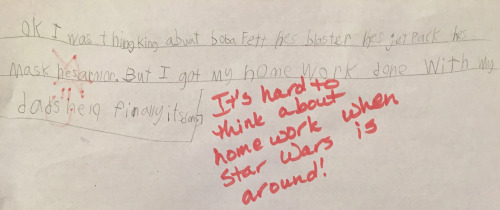 OK I was thingking about boba Fett hes blaster hes jet pack hes
mask hes armor. But I got my home work done with my
dads help finally its done
It's hard to
think about
homework when
Star Wars is
around!